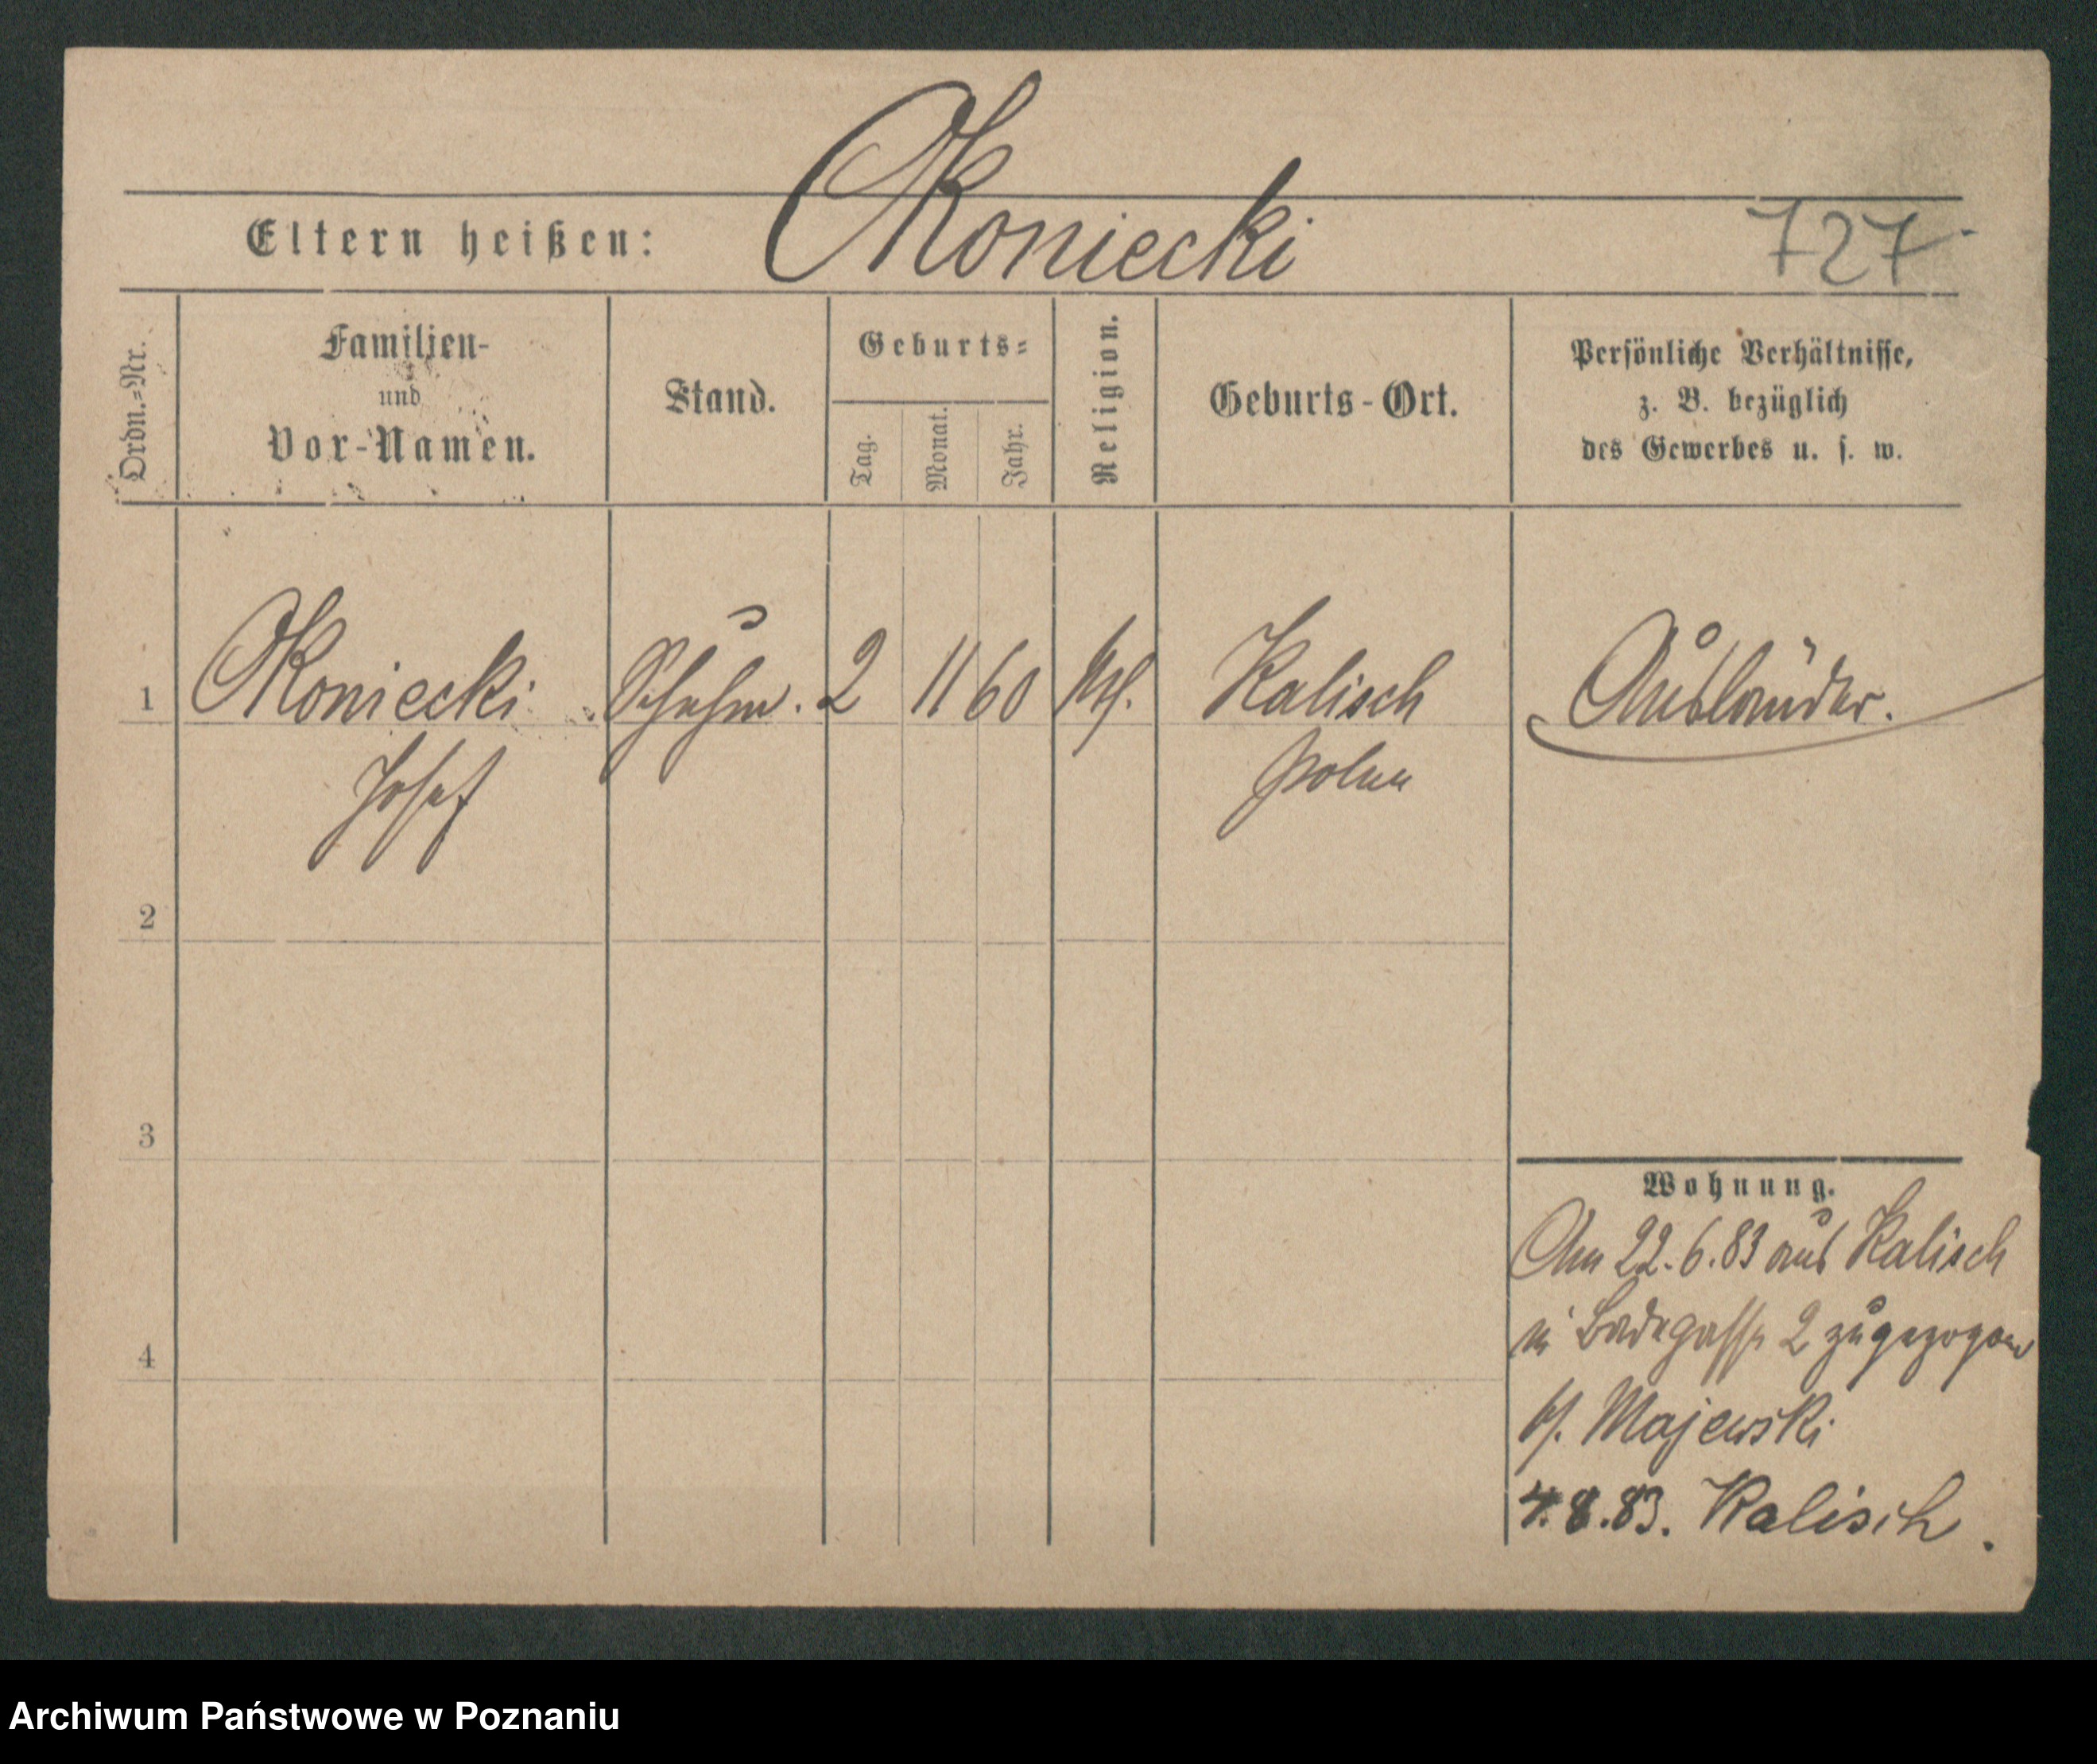 Okoniecki
Eltern heißen:
727.
Ordn.-Nr.
Familien-
und
Vor-Namen.
Stand.
Geburts-
Tag.
Monat.
Jahr.
Religion.
Geburts-Ort.
Persönliche Verhältnisse,
z. B. bezüglich
des Gewerbes u. s. w.
1 Okoniecki Schuhm. 2 11 60 Kalisch Ausländer.
Josef Polen
2
3
4
Wohnung.
Am 22.6.83 aus Kalisch
in Badegasse 2 zugezogen
b/. Majewski
8.83. Kalisch.
Archiwum Państwowe w Poznaniu